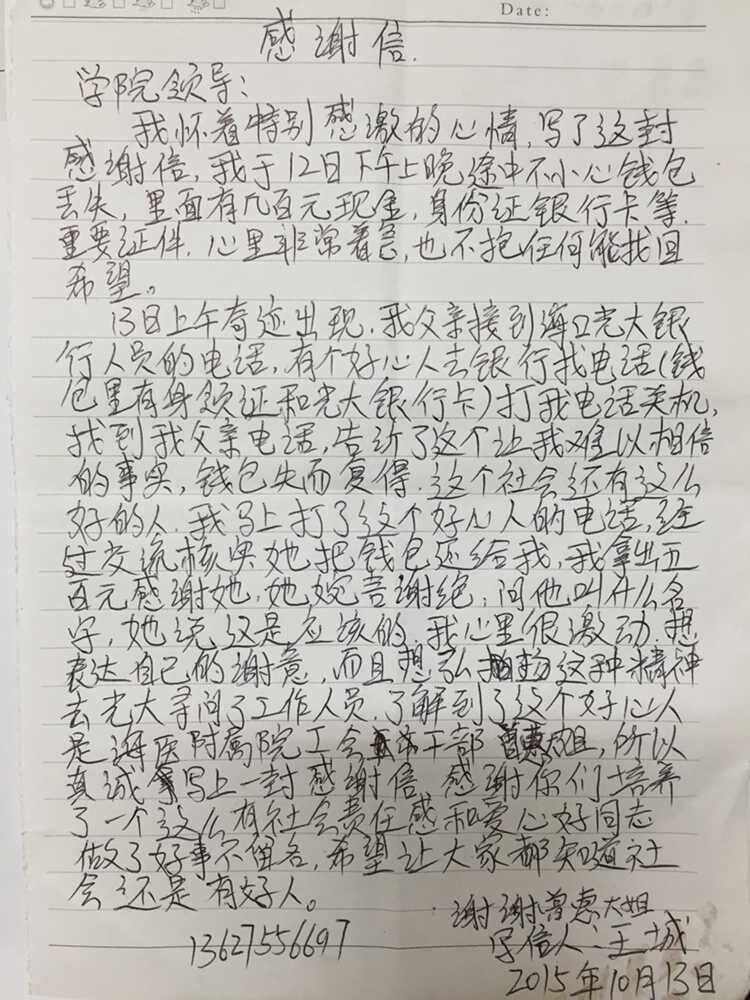 Date:
感谢信.
学院领导:
我怀着特别感激的心情,写了这封
感谢信,我于12日下午上晚途中不小心钱包
丢失,里面有几百元现金,身份证银行卡等.
重要证件.心里非常着急,也不抱任何能找回
希望。
13日上午奇迹出现.我父亲接到海口光大银
行人员的电话,有个好心人去银行找电话(钱
包里有身领证和光大银行卡)打我电话关机,
找到我父亲电话,告诉了这个让我难以相信
的事实,钱包失而复得.这个社会还有这么
好的人.我马上打了这个好心人的电话,经
过交流核实她把钱包还给我,我拿出五
百元感谢她,她婉言谢绝,问他叫什么名
字,她说这是应该的,我心里很激动.想
表达自己的谢意,而且想弘扬这种精神
去光大寻问了工作人员,了解到了这个好心人
是海医附属院工会干部曾惠大姐,所以
真诚写上一封感谢信 感谢你们培养
了一个这么有社会责任感和爱心好同志
做了好事不留名,希望让大家都知道社
会还是有好人。
谢谢曾惠大姐
13627556697
写信人:王城
2015年10月13日